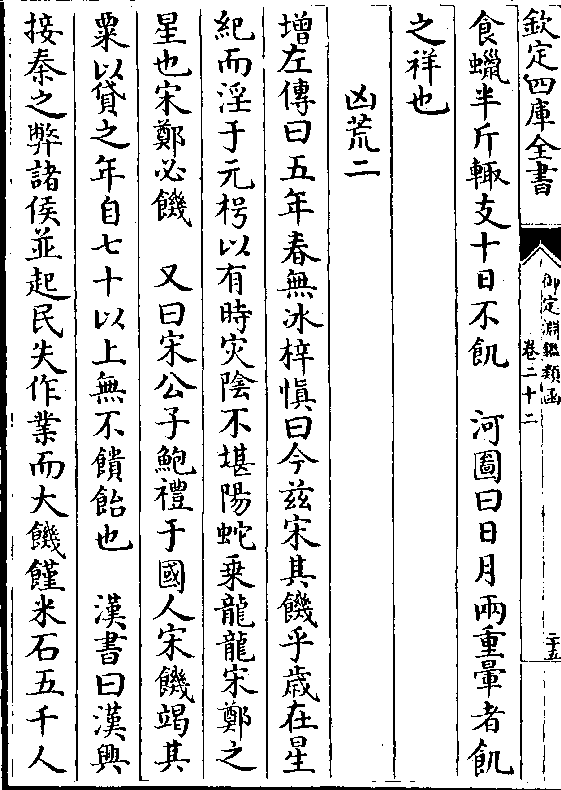 欽定四庫全書
御定淵鑑類函
卷二十二
二十五
食蠟半斤輙支十日不飢　河圖曰日月兩重暈者飢
之祥也
凶荒二
增左傳曰五年春無冰梓慎曰今兹宋其饑乎歲在星
紀而淫于元枵以有時灾陰不堪陽蛇乗龍龍宋鄭之
星也宋鄭必饑　又曰宋公子鮑禮于國人宋饑竭其
粟以貸之年自七十以上無不饋飴也　漢書曰漢興
接秦之弊諸侯並起民失作業而大饑饉米石五千人